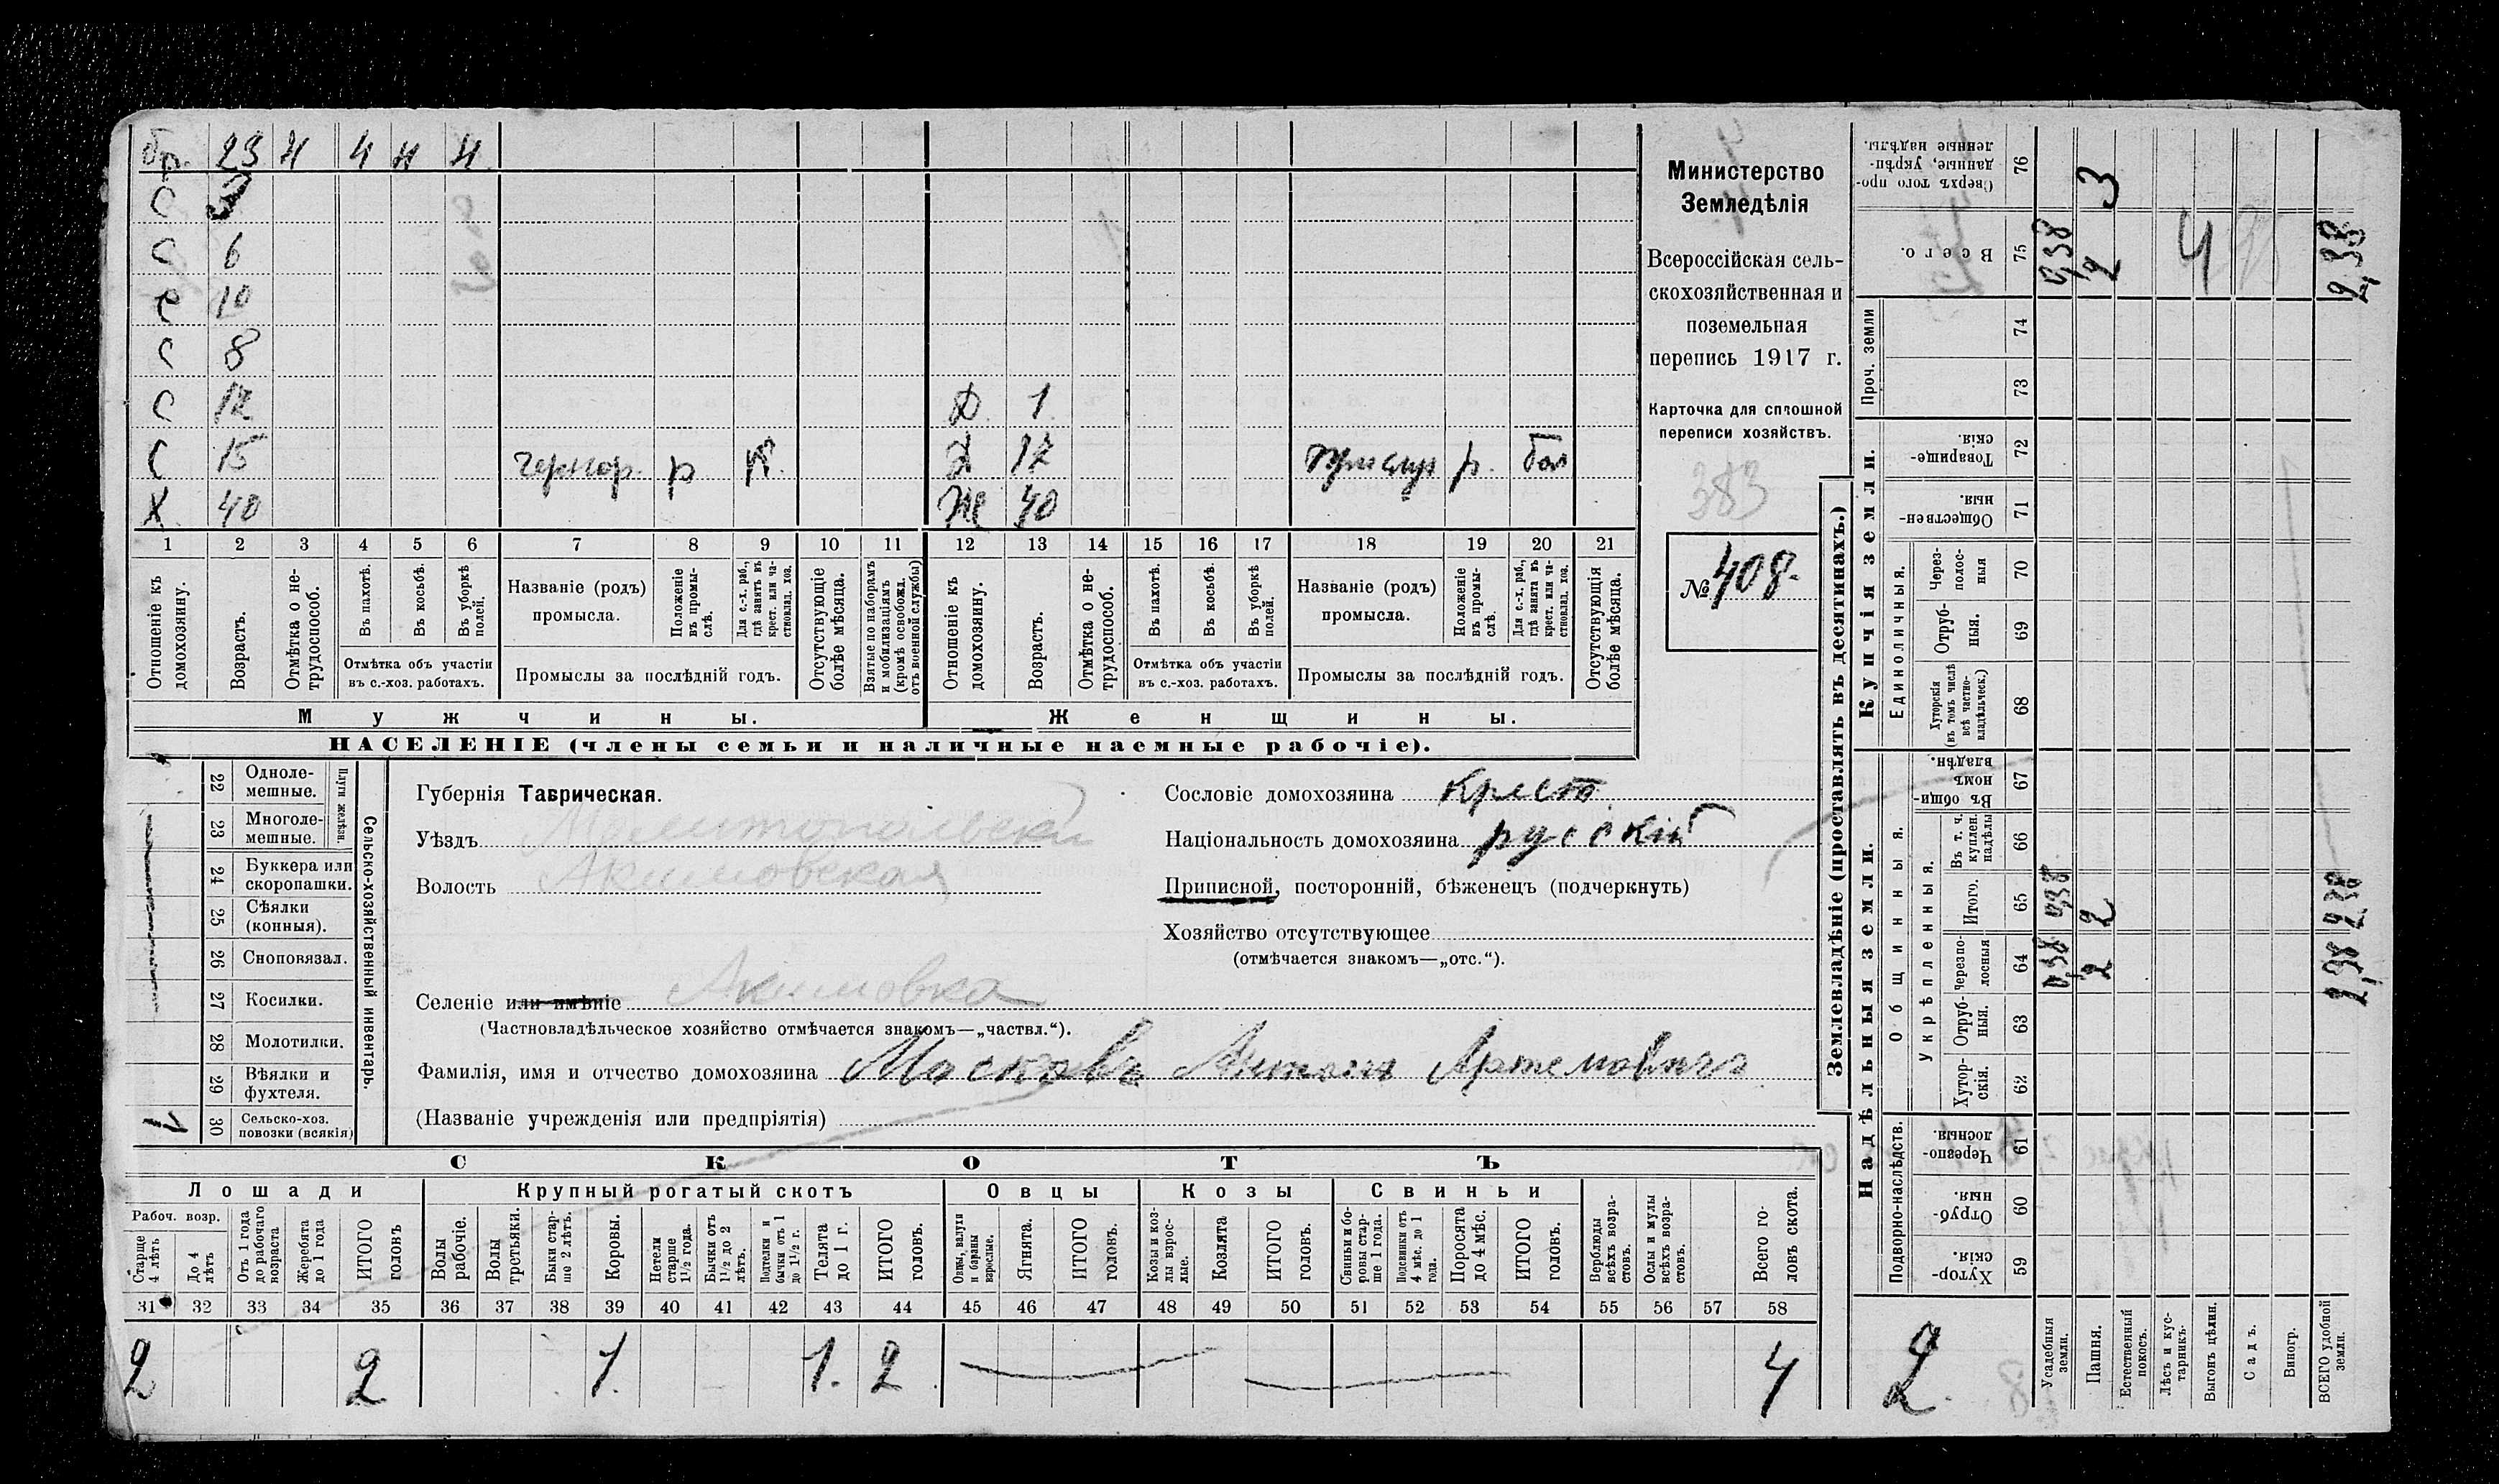 бр. 23 н 4 н н
С 3
С 6
С 10
С 8
С 12 Д. 1.
С 15 чернор. р Д 17 р.
Х 40 Же 40
1 2 3 4 5 6 7 8 9 10 11 12 13 14 15 16 17 18 19 20 21
Отношеніе къ домохозяину.
Возрастъ.
Отмѣтка о нетрудоспособ.
Въ пахотѣ.
Въ косьбѣ.
Въ уборкѣ полей.
Отмѣтка объ участіи въ с.-хоз. работахъ.
Названіе (родъ) промысла.
Положеніе въ промыслѣ.
Для с.-х. раб., гдѣ занятъ въ крест. или частновлад. хоз.
Промыслы за послѣдній годъ.
Отсутствующіе болѣе мѣсяца.
Взятые по наборамъ и мобилизаціямъ (кромѣ освобожд. отъ военной службы)
Отношеніе къ домохозяину.
Возрастъ.
Отмѣтка о нетрудоспособ.
Въ пахотѣ.
Въ косьбѣ.
Въ уборкѣ полей.
Отмѣтка объ участіи въ с.-хоз. работахъ.
Названіе (родъ) промысла.
Положеніе въ промыслѣ.
Для с.-х. раб., гдѣ занятъ въ крест. или частновлад. хоз.
Промыслы за послѣдній годъ.
Отсутствующія болѣе мѣсяца.
Мужчины.
Женщины.
НАСЕЛЕНІЕ (члены семьи и наличные наемные рабочіе).
Министерство
Земледѣлія
Всероссійская сель-
скохозяйственная и
поземельная
перепись 1917 г.
Карточка для сплошной
переписи хозяйствъ.
383
№ 408.
22 Однолемешные.
23 Многолемешные.
Плуги желѣзн.
24 Буккера или скоропашки.
25 Сѣялки (конныя).
26 Сноповязал.
27 Косилки.
28 Молотилки.
29 Вѣялки и фухтеля.
30 Сельско-хоз. повозки (всякія) 1
Сельско-хозяйственный инвентарь.
Губернія Таврическая.
Уѣздъ Мелитопольскій
Волость Акимовская
Селеніе или имѣніе Акимовка
(Частновладѣльческое хозяйство отмѣчается знакомъ—„частвл.“).
Фамилія, имя и отчество домохозяина Масковъ Антонъ Артемовичъ
(Названіе учрежденія или предпріятія)
Сословіе домохозяина крест.
Національность домохозяина русскій
Приписной, посторонній, бѣженецъ (подчеркнуть)
Хозяйство отсутствующее
(отмѣчается знакомъ—„отс.“).
СКОТЪ
Лошади Крупный рогатый скотъ Овцы Козы Свиньи
Рабоч. возр.
Старше 4 лѣтъ
До 4 лѣтъ
Отъ 1 года до рабочаго возраста
Жеребята до 1 года
ИТОГО головъ
Волы рабочіе.
Волы третьяки.
Быки старше 2 лѣтъ.
Коровы.
Нетели старше 1½ года.
Бычки отъ 1½ до 2 лѣтъ.
Подтелки и бычки отъ 1 до 1½ г.
Телята до 1 г.
ИТОГО головъ.
Овцы, валухи и бараны взрослые.
Ягнята.
ИТОГО головъ.
Козы и козлы взрослые.
Козлята
ИТОГО головъ.
Свиньи и боровы старше 1 года.
Подсвинки отъ 4 мѣс. до 1 года.
Поросята до 4 мѣс.
ИТОГО головъ.
Верблюды всѣхъ возрастовъ.
Ослы и мулы всѣхъ возрастовъ.
Всего головъ скота.
31 32 33 34 35 36 37 38 39 40 41 42 43 44 45 46 47 48 49 50 51 52 53 54 55 56 57 58
2 2 1. 1. 2 4
Землевладѣніе (проставлять въ десятинахъ.)
Надѣльныя земли.
Купчія земли.
Проч. земли
Подворно-наслѣдств.
Общинныя.
Укрѣпленныя.
Единоличныя.
59 Хуторскія.
60 Отрубныя.
61 Черезполосныя.
62 Хуторскія.
63 Отрубныя.
64 Черезполосныя
65 Итого.
66 Въ т. ч. куплен. надѣлы
67 Въ общинномъ владѣн.
68 Хуторскія (въ томъ числѣ всѣ частновладѣльческ.)
69 Отрубныя.
70 Черезполосныя
71 Общественныя.
72 Товарищескія.
73
74
75 Всего.
76 Сверхъ того проданные, укрѣпленные надѣлы.
Усадебныя земли. 0,38 0,38 0,38
Пашня. 2 2 2 3
Естественный покосъ.
Лѣсъ и кустарникъ.
Выгонъ цѣлин. 4
Садъ.
Виногр.
ВСЕГО удобной земли. 2,38 2,38 2,38
2.